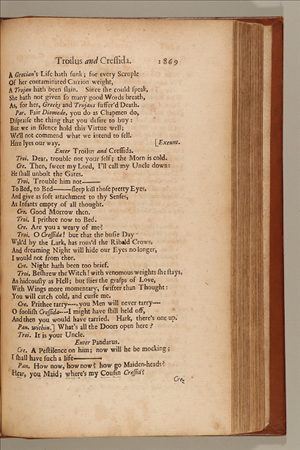 Troilus and Cressida. 1869
A Grecian's Life hath sunk; for every Scruple
Of her contaminated Carrion weight,
A Trojan hath been slain. Since she could speak,
She hath not given so many good Words breath,
As, for her, Greeks and Trojans suffer'd Death.
Par. Fair Diomede, you do as Chapmen do,
Dispraise the thing that you desire to buy:
But we in silence hold this Virtue well;
We'll not commend what we intend to sell.
Here lyes our way. [Exeunt.
Enter Troilus and Cressida.
Troi. Dear, trouble not your self; the Morn is cold.
Cre. Then, sweet my Lord, I'll call my Uncle down:
He shall unbolt the Gates.
Troi. Trouble him not———
To Bed, to Bed———sleep kill those pretty Eyes,
And give as soft attachment to thy Senses,
As Infants empty of all thought.
Cre. Good Morrow then.
Troi. I prithee now to Bed.
Cre. Are you a weary of me?
Troi. O Cressida! but that the busie Day
Wak'd by the Lark, has rous'd the Ribald Crows,
And dreaming Night will hide our Eyes no longer,
I would not from thee.
Cre. Night hath been too brief.
Troi. Beshrew the Witch! with venomous wights she stays,
As hideously as Hell; but flies the grasps of Love,
With Wings more momentary, swifter than Thought:
You will catch cold, and curse me.
Cre. Prithee tarry——you Men will never tarry—
O foolish Cressida—I might have still held off,
And then you would have tarried. Hark, there's one up.
Pan. within.] What's all the Doors open here?
Troi. It is your Uncle.
Enter Pandarus.
Cre. A Pestilence on him; now will he be mocking;
I shall have such a life————
Pan. How now, how now? how go Maiden-heads?
Hear, you Maid; where's my Cousin Cressid?
Cre.